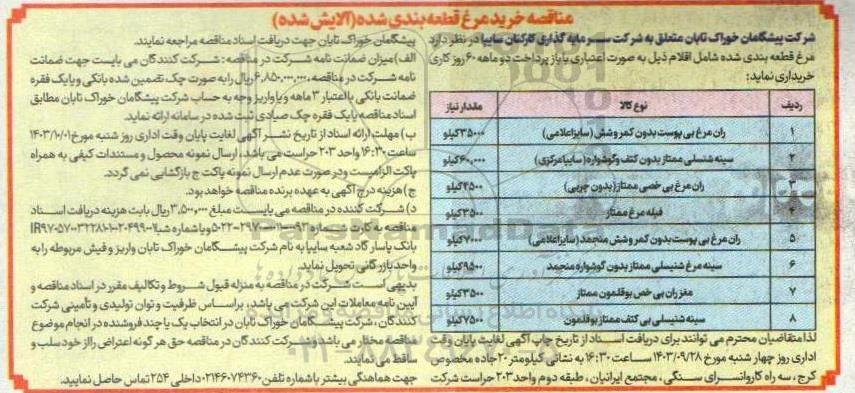 مناقصه خرید مرغ قطعه بندی شده (آلایش شده)
شرکت پیشگامان خوراک تابان متعلق به شرکت سرمایه گذاری کارکنان سایپا در نظر دارد
مرغ قطعه بندی شده شامل اقلام ذیل به صورت اعتباری با باز پرداخت دو ماهه ۶۰ روز کاری
خریداری نماید:
ردیف نوع کالا مقدار نیاز
۱ ران مرغ بی پوست بدون کمر وشش (سایز اعلامی) ۳۵۰۰۰ کیلو
۲ سینه شنسلی ممتاز بدون کتف وگوشواره (سایپا مرکزی) ۶۰,۰۰۰ کیلو
۳ ران مرغ بی خصی ممتاز (بدون چربی) ۴۵۰۰ کیلو
۴ فیله مرغ ممتاز ۳۵۰۰ کیلو
۵ ران مرغ بی پوست بدون کمر وشش منجمد (سایز اعلامی) ۷۰۰۰ کیلو
۶ سینه مرغ شنیسلی ممتاز بدون گوشواره منجمد ۹۵۰۰ کیلو
۷ مغز ران بی خص بوقلمون ممتاز ۳۵۰۰ کیلو
۸ سینه شنیسلی بی کتف ممتاز بوقلمون ۷۵۰۰ کیلو
لذا متقاضیان محترم می توانند برای دریافت اسناد از تاریخ چاپ آگهی لغایت پایان وقت
اداری روز چهار شنبه مورخ ۱۴۰۳/۰۹/۲۸ ساعت ۱۶:۳۰ به نشانی کیلومتر ۲۰ جاده مخصوص
کرج، سه راه کاروانسرای سنگی، مجتمع ایرانیان، طبقه دوم واحد ۲۰۳ حراست شرکت
پیشگامان خوراک تابان جهت دریافت اسناد مناقصه مراجعه نمایند.
الف) میزان ضمانت نامه شرکت در مناقصه: شرکت کنندگان می بایست جهت ضمانت
نامه شرکت در مناقصه، ۶,۸۵۰,۰۰۰,۰۰۰ ریال را به صورت چک تضمین شده بانکی و یا یک فقره
ضمانت بانکی با اعتبار ۳ ماهه و یا واریز وجه به حساب شرکت پیشگامان خوراک تابان مطابق
اسناد مناقصه یا یک فقره چک صیادی ثبت شده در سامانه ارائه نماید.
ب) مهلت ارائه اسناد از تاریخ نشر آگهی لغایت پایان وقت اداری روز شنبه مورخ ۱۴۰۳/۱۰/۰۱
ساعت ۱۶:۳۰ واحد ۲۰۳ حراست می باشد، ارسال نمونه محصول و مستندات کیفی به همراه
پاکت الزامیست و در صورت عدم ارسال نمونه پاکت ج بازگشایی نمی گردد.
ج) هزینه درج آگهی به عهده برنده مناقصه خواهد بود.
د) شرکت کننده در مناقصه می بایست مبلغ ۳,۵۰۰,۰۰۰ ریال بابت هزینه دریافت اسناد
مناقصه به کارت به شماره و یا شماره شبا
بانک پاسار گاد شعبه سایپا به نام شرکت پیشگامان خوراک تابان واریز و فیش مربوطه را به
واحد بازرگانی تحویل نماید.
بدیهی است شرکت در مناقصه به منزله قبول شروط و تکالیف مقرر در اسناد مناقصه و
آیین نامه معاملات این شرکت می باشد، بر اساس ظرفیت و توان تولیدی و تأمینی شرکت
کنندگان، شرکت پیشگامان خوراک تابان در انتخاب یک یا چند فروشنده در انجام موضوع
مناقصه مختار می باشد و شرکت کنندگان در مناقصه حق هر گونه اعتراض را از خود سلب و
ساقط می نمایند.
جهت هماهنگی بیشتر با شماره تلفن ۰۲۱۴۶۰۷۴۳۶۰ داخلی ۲۵۴ تماس حاصل نمایید.